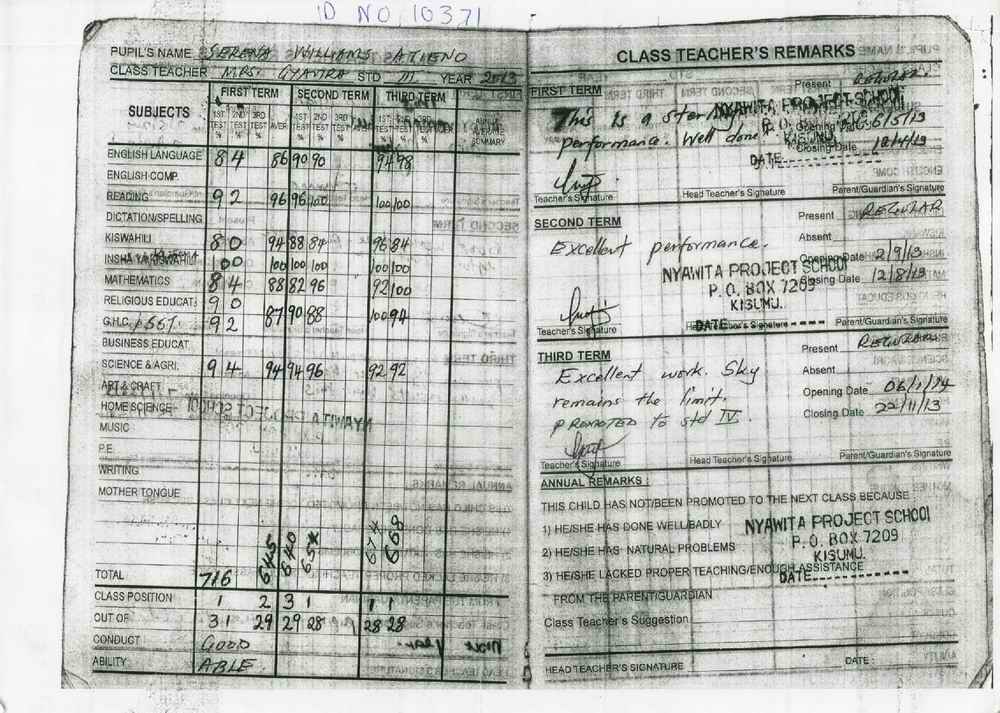 ID NO 10371
PUPIL'S NAME SERENA WILLIAMS ATIENO
CLASS TEACHER MRS. STD III YEAR 2013
SUBJECTS
FIRST TERM SECOND TERM THIRD TERM
1ST TEST % 2ND TEST % 3RD TEST % AVER 1ST TEST % 2ND TEST % 3RD TEST % 1ST TEST %
SUMMARY
ENGLISH LANGUAGE 84 86 90 90 94 98
ENGLISH COMP.
READING 92 96 96 100 100 100
DICTATION/SPELLING
KISWAHILI 80 94 88 84 96 84
INSHA YA KISWAHILI 100 100 100 100 100 100
MATHEMATICS 84 88 82 96 92 100
RELIGIOUS EDUCAT. 90
G.H.C. / SST. 92 87 90 88 100 94
BUSINESS EDUCAT
SCIENCE & AGRI. 94 94 94 96 92 92
ART & CRAFT
HOME SCIENCE
MUSIC
P.E.
WRITING
MOTHER TONGUE
TOTAL 716 645 640 668
CLASS POSITION 1 2 3 1 1 1
OUT OF 31 29 29 28 28 28
CONDUCT GOOD
ABILITY ABLE.
CLASS TEACHER'S REMARKS
FIRST TERM
Present REGULAR.
This is a sterling
performance. Well done
NYAWITA PROJECT SCHOOL
KISUMU
DATE
Opening Date 6/5/13
Closing Date 12/4/13
Teacher's Signature Head Teacher's Signature Parent/Guardian's Signature
SECOND TERM
Present REGULAR
Absent
Excellent performance.
Opening Date 2/9/13
Closing Date 12/8/13
NYAWITA PROJECT SCHOOL
P. O. BOX 7209
KISUMU.
DATE
Teacher's Signature Head Teacher's Signature Parent/Guardian's Signature
THIRD TERM
Present REGULAR
Absent
Excellent work. Sky
remains the limit.
PROMOTED to std IV.
Opening Date 06/1/14
Closing Date 22/11/13
Teacher's Signature Head Teacher's Signature Parent/Guardian's Signature
ANNUAL REMARKS :
THIS CHILD HAS NOT/BEEN PROMOTED TO THE NEXT CLASS BECAUSE :
1) HE/SHE HAS DONE WELL/BADLY
2) HE/SHE HAS NATURAL PROBLEMS
3) HE/SHE LACKED PROPER TEACHING/ENOUGH ASSISTANCE
FROM THE PARENT/GUARDIAN
NYAWITA PROJECT SCHOOL
P. O. BOX 7209
KISUMU.
DATE
Class Teacher's Suggestion
HEAD TEACHER'S SIGNATURE DATE :